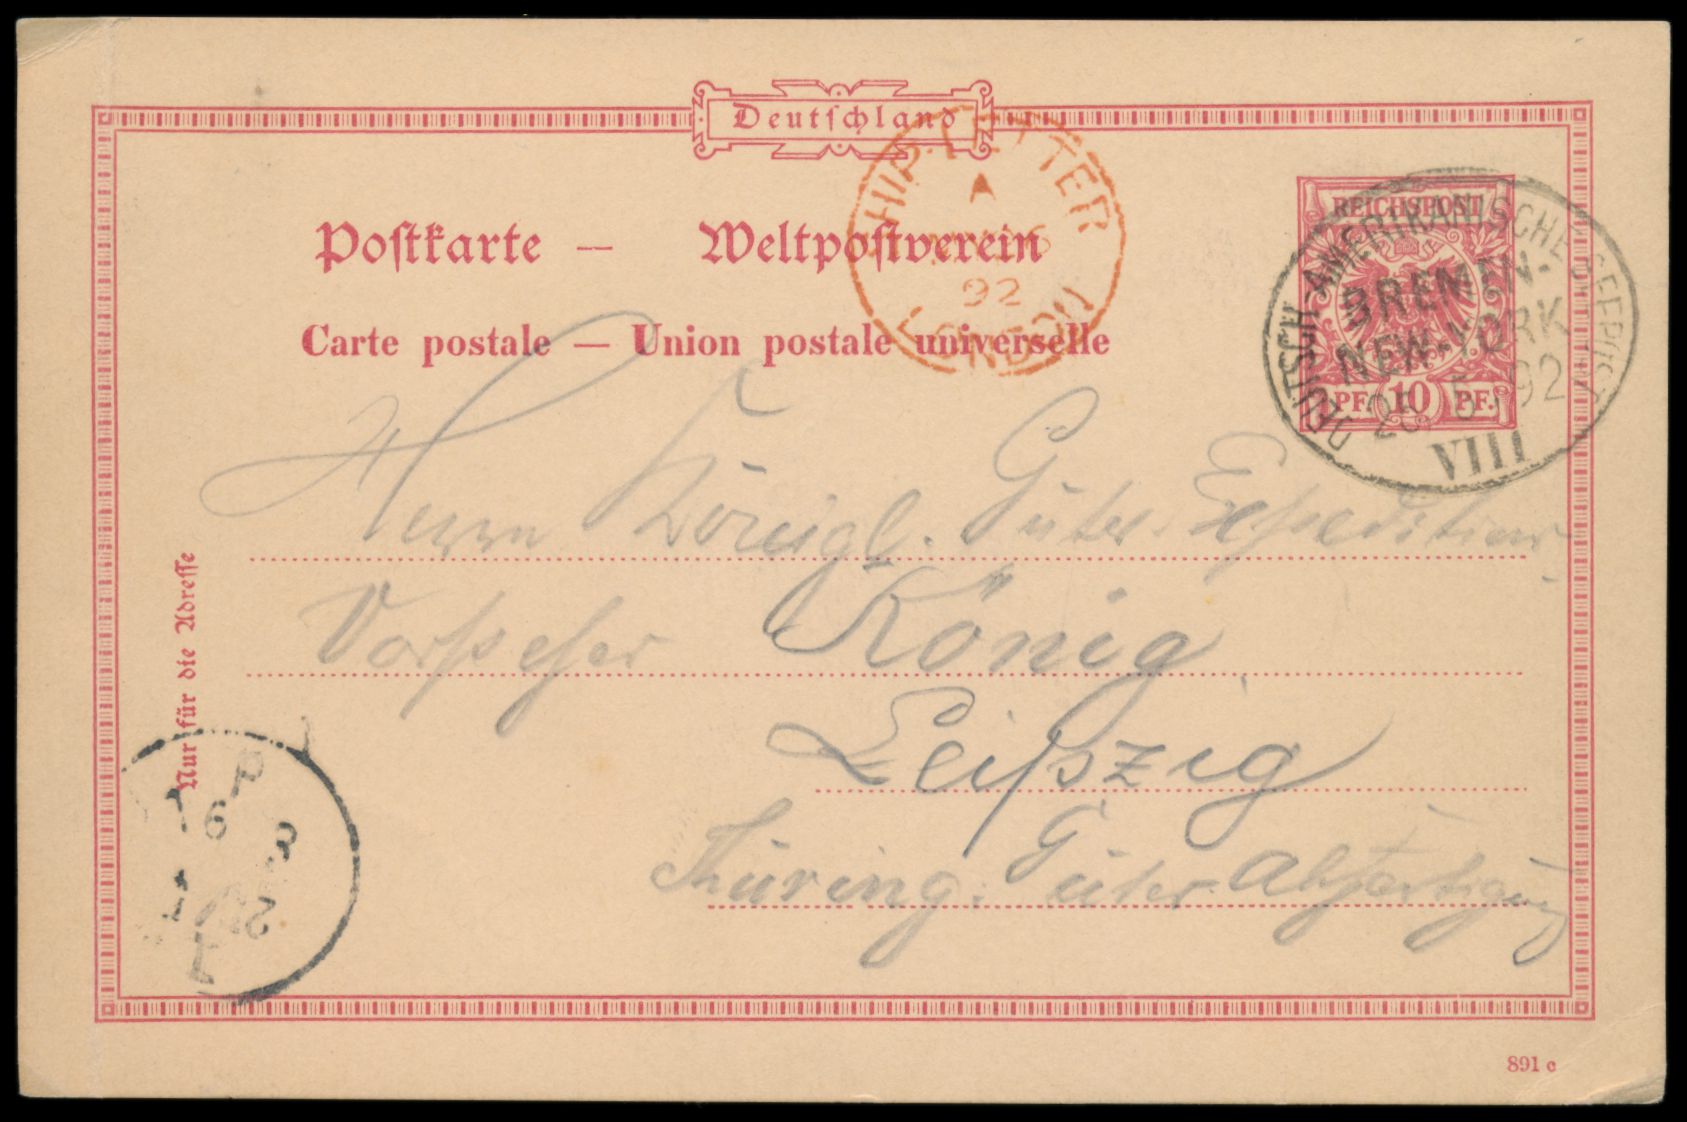 Deutschland
Postkarte — Weltpostverein
Carte postale — Union postale universelle
SHIP-LETTER
A
26
92
LONDON
REICHSPOST
PF. 10 PF.
DEUTSCH-AMERIKANISCHE SEEPOST
BREMEN-
NEW-YORK
5 92
VIII
Herrn Königl. Güter Expeditions
Vorsteher König
Leipzig
Thüring. Güter Abfertigung
Nur für die Adresse
891 c